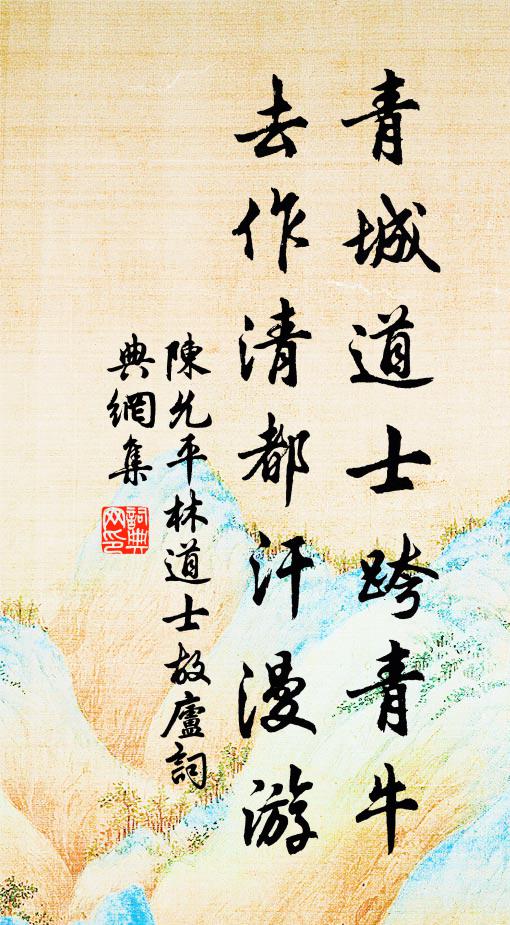 青城道士跨青牛
去作清都汗漫游
陳允平林道士故廬詞
典網集
詞典
网印